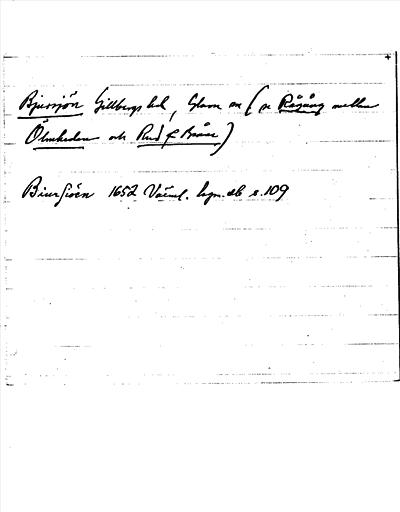 Bjursjön Gillbergs hd, Glava sn (se Rågång mellan
Ölmheden och Rud f Braser)
Biursiöen 1652 Värml. lagm. db s. 109